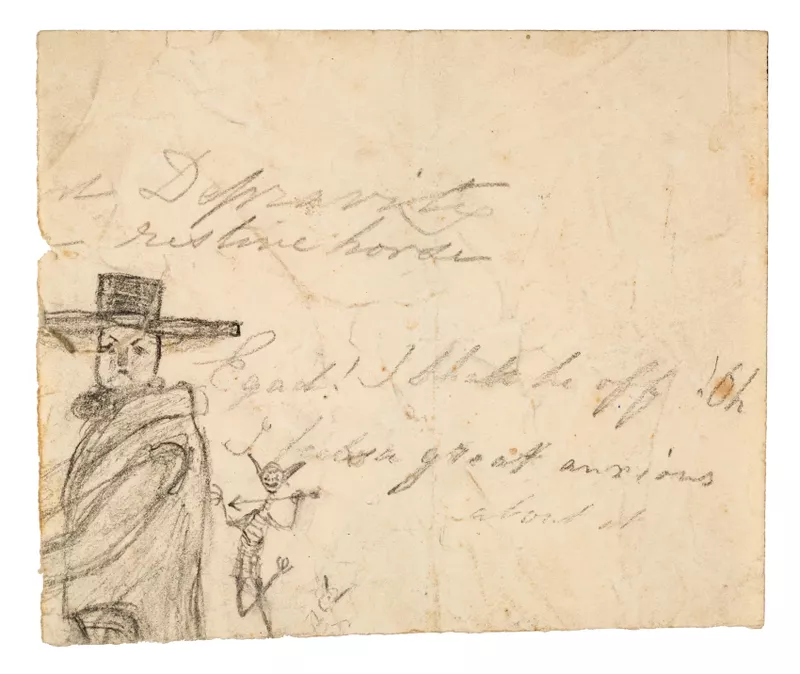 Depravity
restive horse
Egad! I shall be off! Oh
I feels a great anxious
about it